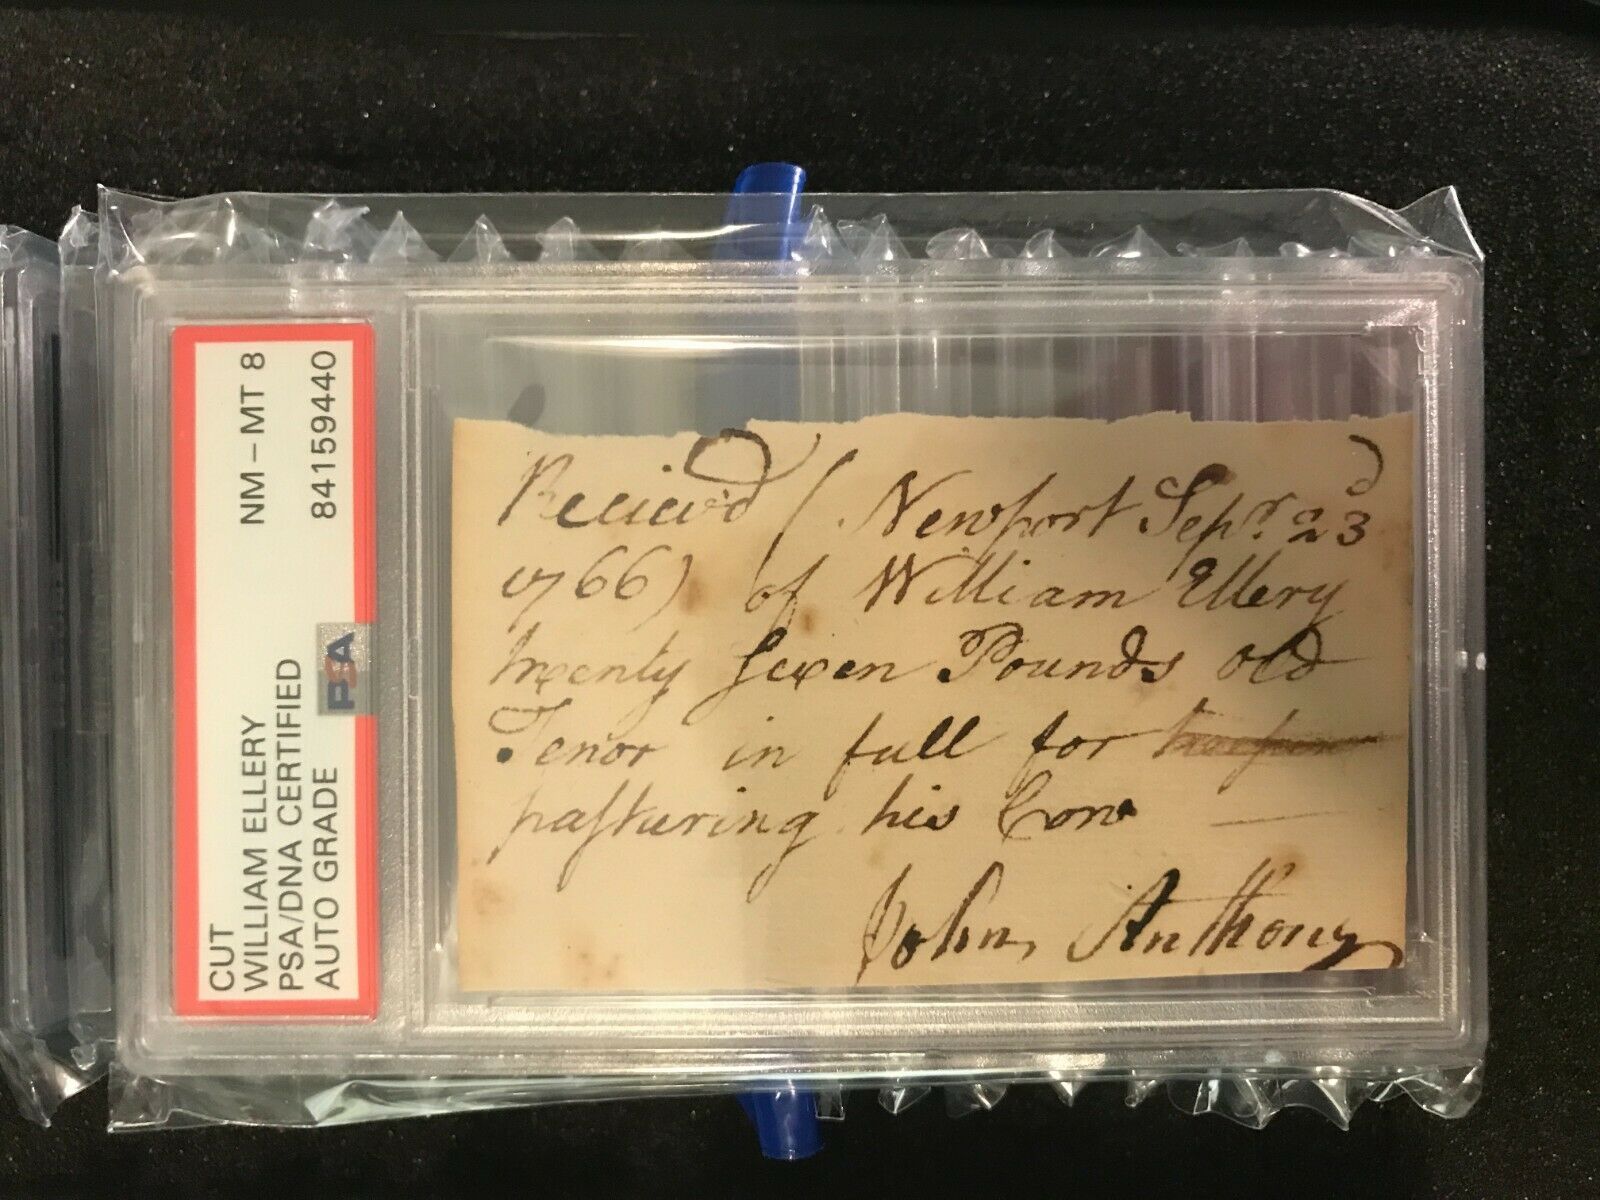 CUT
WILLIAM ELLERY
PSA/DNA CERTIFIED
AUTO GRADE
NM-MT 8
84159440
PSA
Reciev'd ( Newport Sepr. 23d
1766) of William Ellery
twenty Seven Pounds old
Tenor in full for
pasturing his Cow
John Anthony